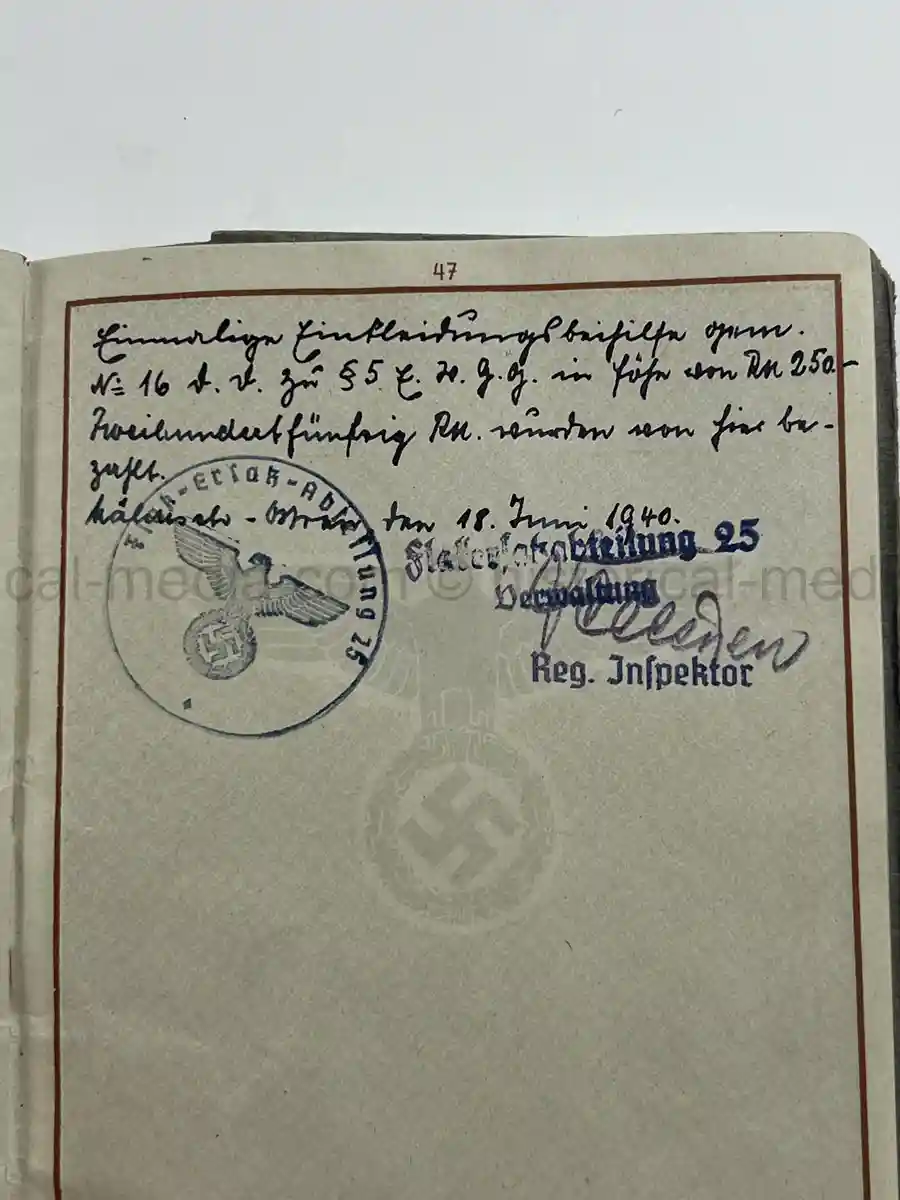 47
Einmalige Einkleidungsbeihilfe gem.
№ 16 d. D. zu § 5 E. W. G. G. in Höhe von RM 250.-
Zweihundertfünfzig RM. wurden von hier be-
zahlt.
Mährisch-Ostrau, den 18. Juni 1940.
Flak-Ersatz-Abteilung 25
Flakersatzabteilung 25
Verwaltung
Reg. Inspektor
cal-media.com © historical-med